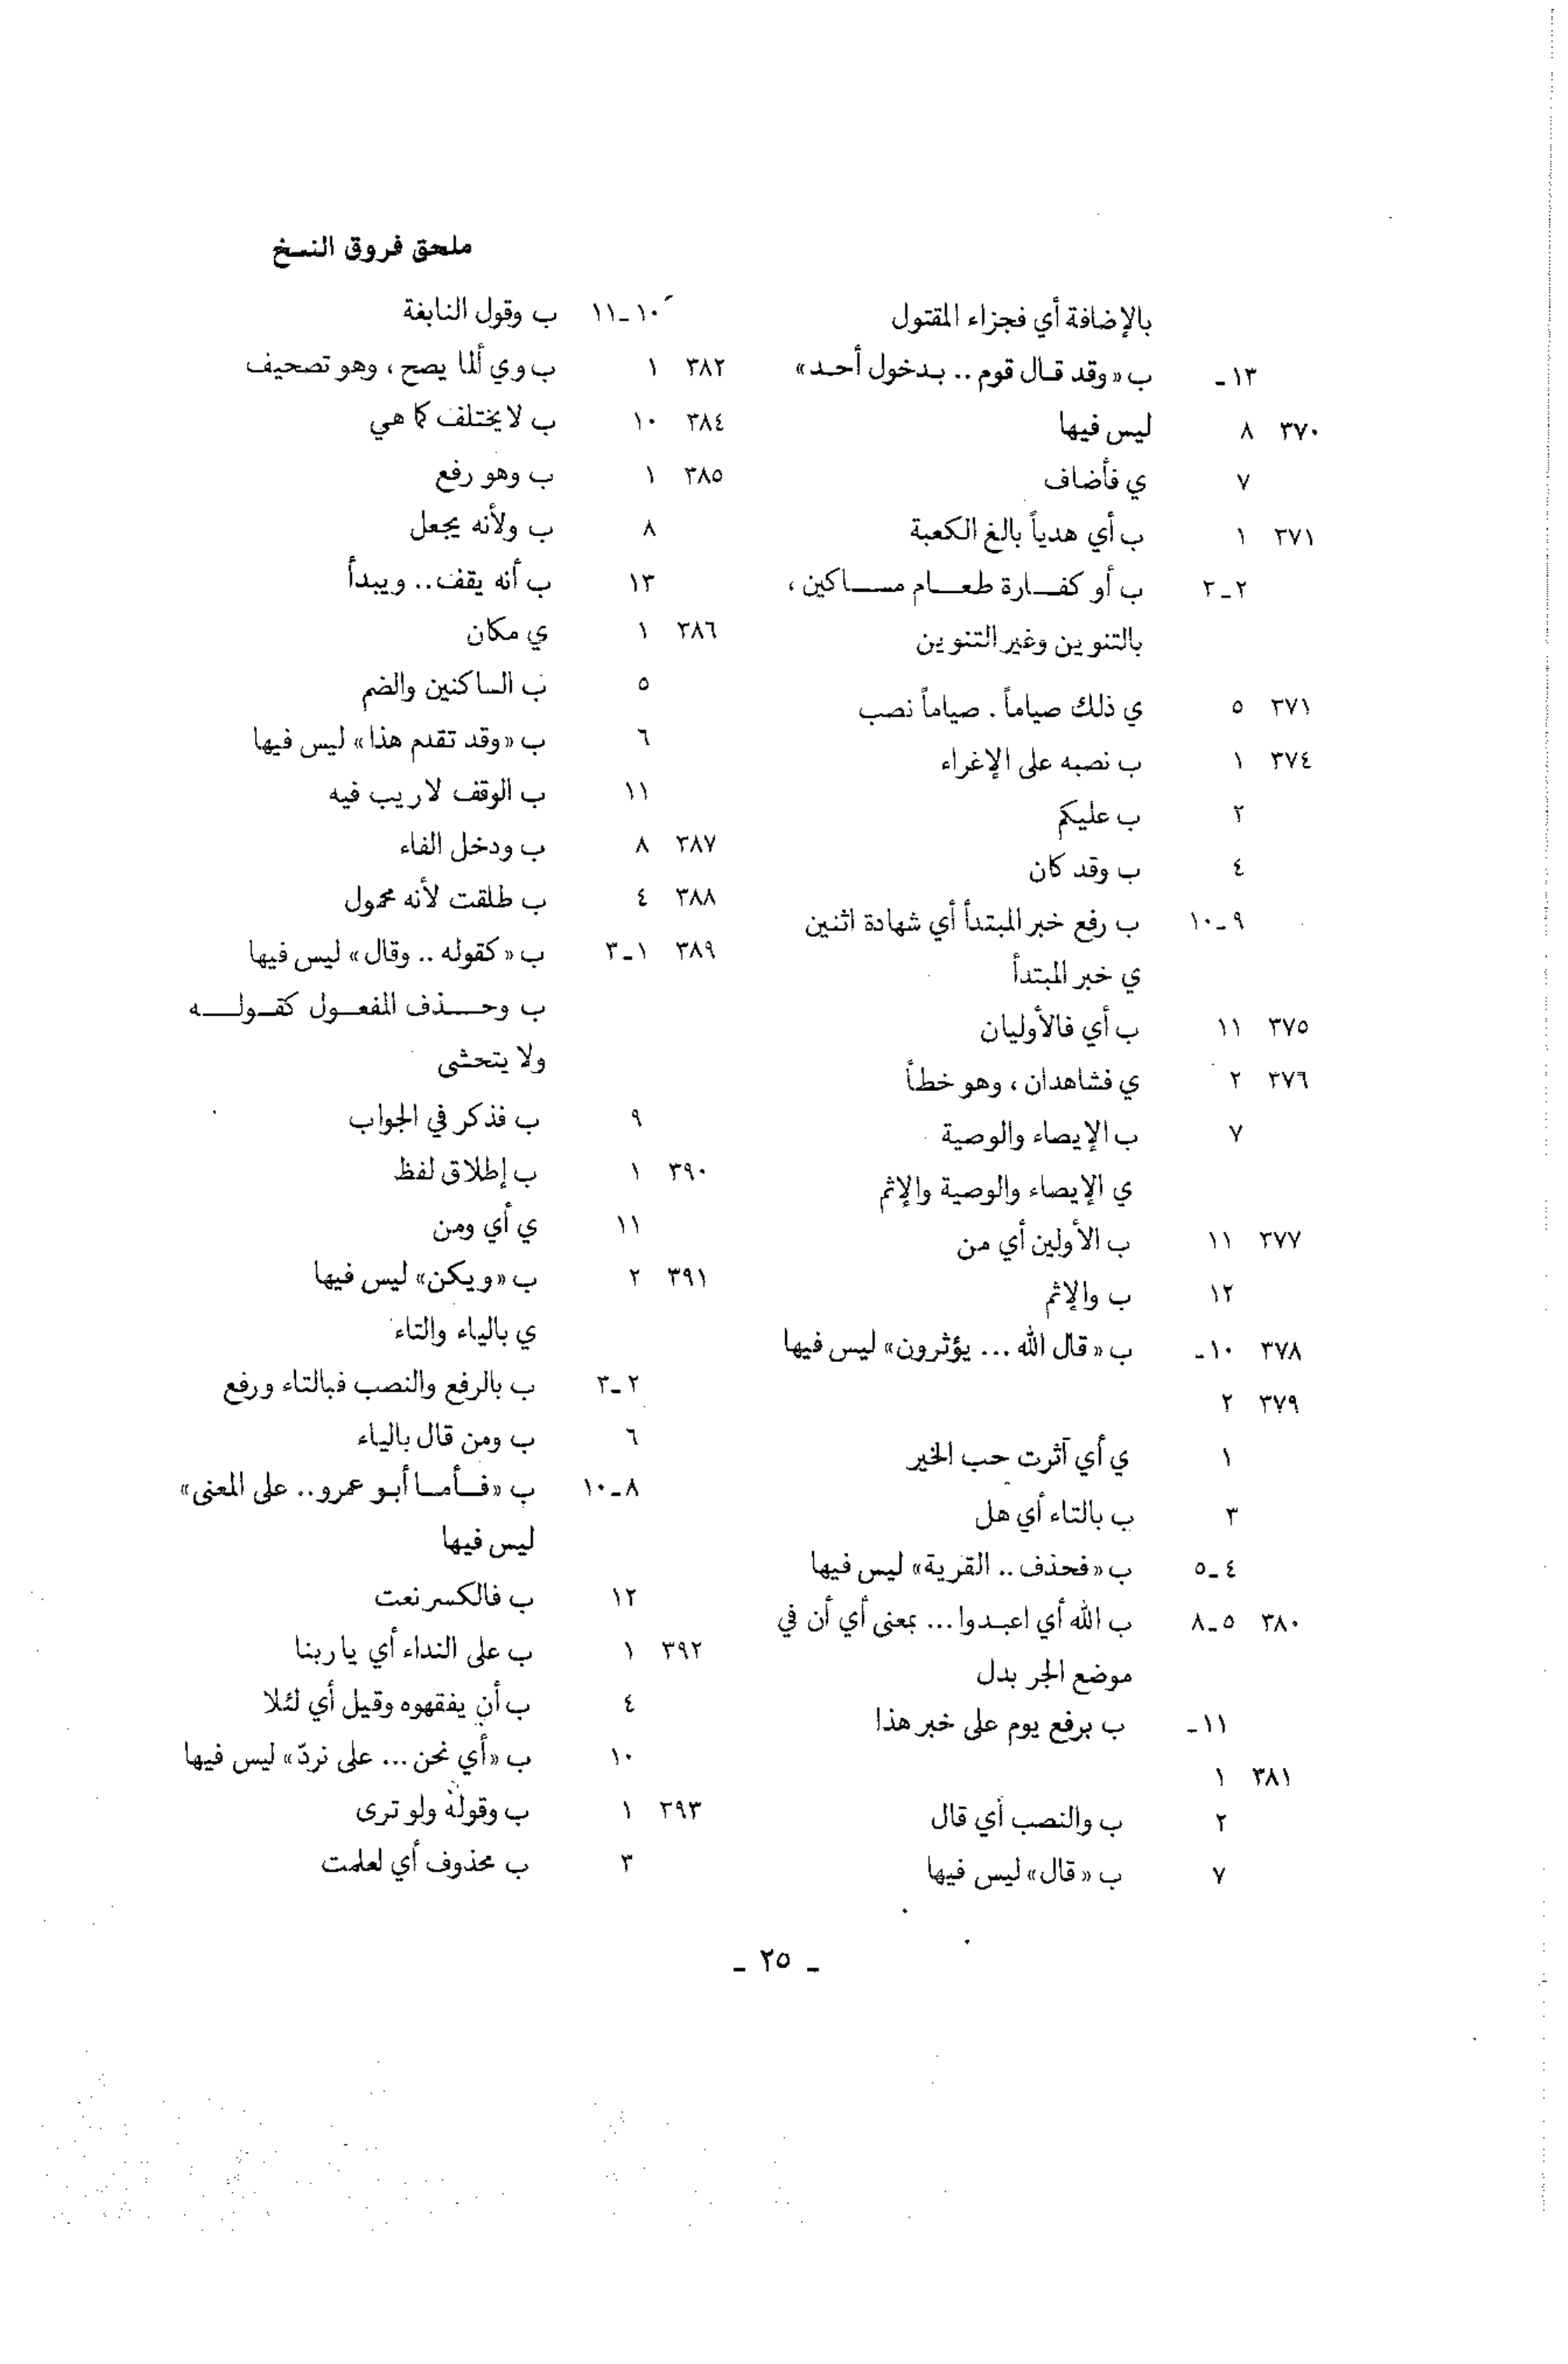 ملحق فروق النسخ
بالإضافة أي فجزاء المقتول
١٣ـ ب «وقد قال قوم .. بدخول أحد»
٣٧٠ ٨ ليس فيها
٧ ي فأضاف
٣٧١ ١ ب أي هدياً بالغ الكعبة
٢ـ٢ ب أو كفارة طعام مساكين ،
بالتنوين وغير التنوين
٣٧١ ٥ ي ذلك صياماً . صياماً نصب
٣٧٤ ١ ب نصبه على الإغراء
٢ ب عليكم
٤ ب وقد كان
٩ـ١٠ ب رفع خبر المبتدأ أي شهادة اثنين
ي خبر المبتدأ
٣٧٥ ١١ ب أي فالأوليان
٣٧٦ ٢ ي فشاهدان ، وهو خطأ
٧ ب الإيصاء والوصية
ي الإيصاء والوصية والإثم
٣٧٧ ١١ ب الأولين أي من
١٢ ب والإثم
٣٧٨ ١٠ـ ب «قال الله ... يؤثرون» ليس فيها
٣٧٩ ٢
١ ي أي آثرت حب الخير
٣ ب بالتاء أي هل
٤ـ٥ ب «فحذف .. القرية» ليس فيها
٣٨٠ ٥ـ٨ ب الله أي اعبدوا ... بمعنى أي أن في
موضع الجر بدل
١١ـ ب برفع يوم على خبر هذا
٣٨١ ١
٢ ب والنصب أي قال
٧ ب «قال» ليس فيها
١٠ـ١١ ب وقول النابغة
٣٨٢ ١ ب وي ألما يصح ، وهو تصحيف
٣٨٤ ١٠ ب لا يختلف كما هي
٣٨٥ ١ ب وهو رفع
٨ ب ولأنه يجعل
١٣ ب أنه يقف .. ويبدأ
٣٨٦ ١ ي مكان
٥ ب الساكنين والضم
٦ ب «وقد تقدم هذا» ليس فيها
١١ ب الوقف لا ريب فيه
٣٨٧ ٨ ب ودخل الفاء
٣٨٨ ٤ ب طلقت لأنه محمول
٣٨٩ ١ـ٣ ب «كقوله .. وقال» ليس فيها
ب وحذف المفعول كقوله
ولا يتحشى
٩ ب فذكر في الجواب
٣٩٠ ١ ب إطلاق لفظ
١١ ي أي ومن
٣٩١ ٢ ب «ويكن» ليس فيها
ي بالياء والتاء
٢ـ٣ ب بالرفع والنصب فبالتاء ورفع
٦ ب ومن قال بالياء
٨ـ١٠ ب «فأما أبو عمرو .. على المعنى»
ليس فيها
١٢ ب فالكسر نعت
٣٩٢ ١ ب على النداء أي يا ربنا
٤ ب أن يفقهوه وقيل أي لئلا
١٠ ب «أي نحن ... على نردّ» ليس فيها
٣٩٣ ١ ب وقوله ولو ترى
٣ ب محذوف أي لعلمت
ـ ٢٥ ـ